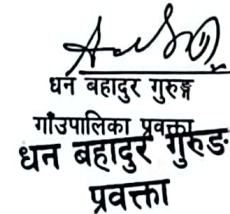 धन बहादुर गुरुङ्ग
गाँउपालिका प्रवक्ता
धन बहादुर गुरुङ
प्रवक्ता